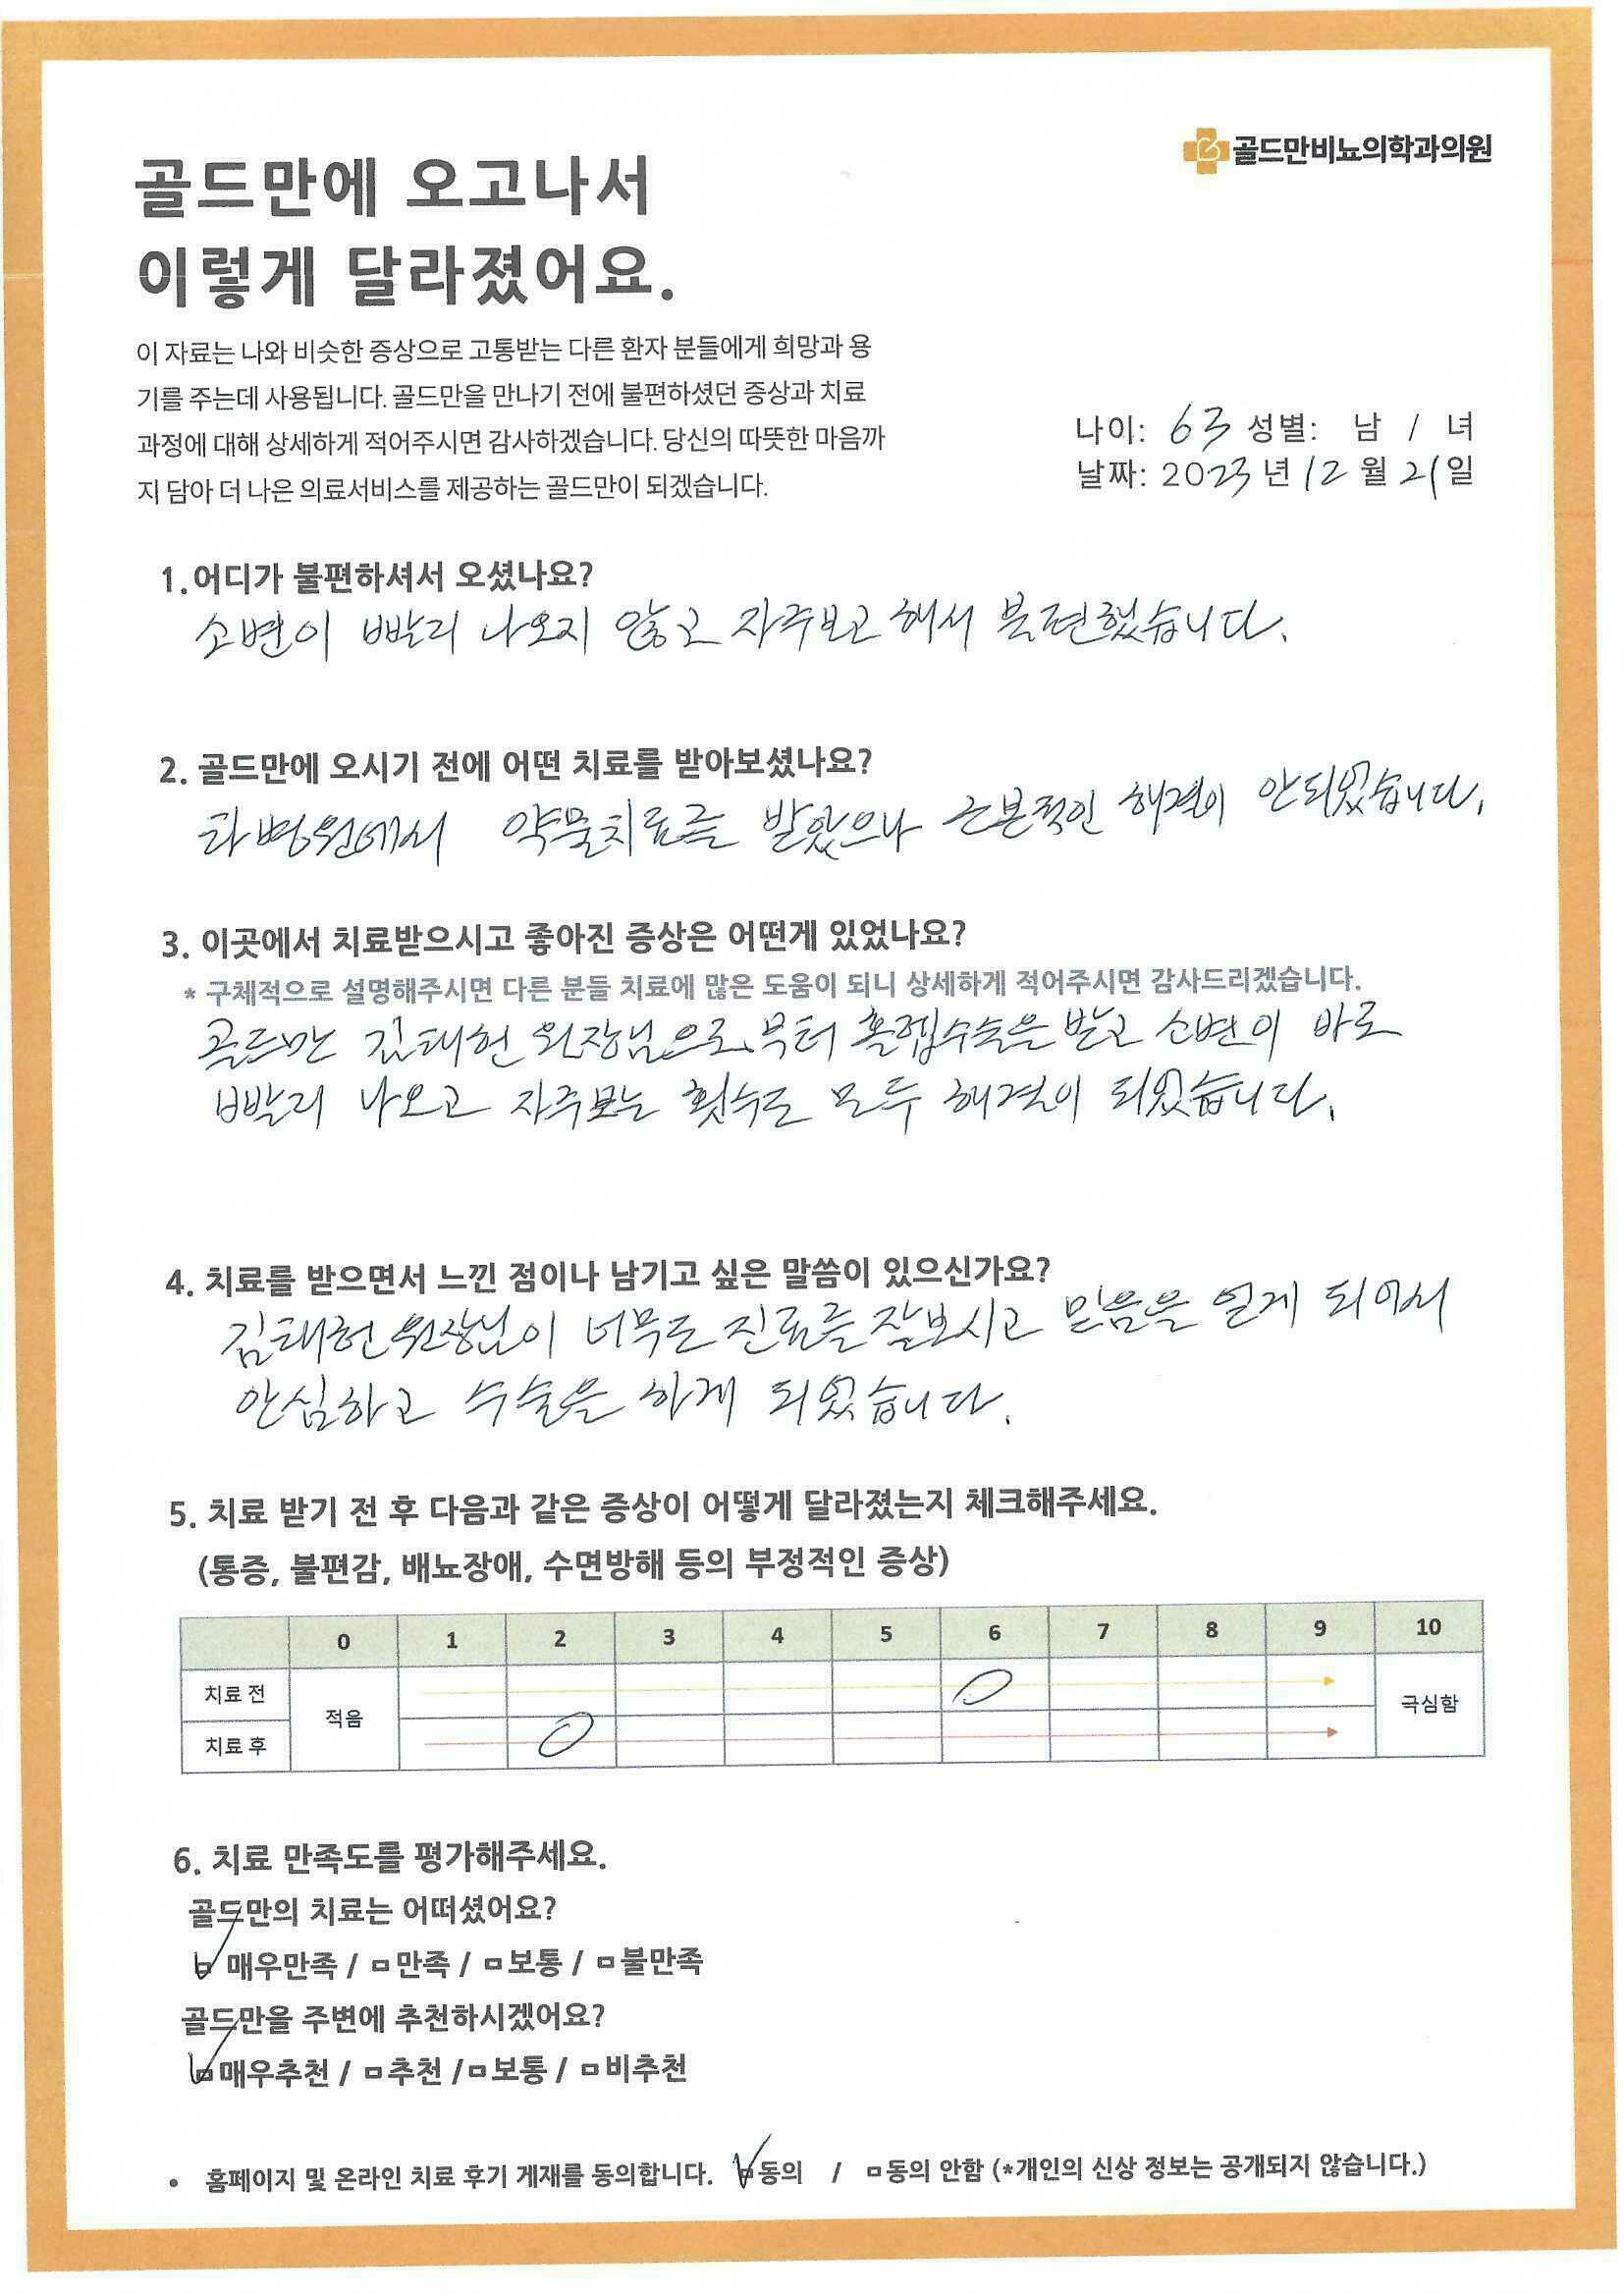 골드만비뇨의학과의원
골드만에 오고나서
이렇게 달라졌어요.
이 자료는 나와 비슷한 증상으로 고통받는 다른 환자 분들에게 희망과 용
기를 주는데 사용됩니다. 골드만을 만나기 전에 불편하셨던 증상과 치료
과정에 대해 상세하게 적어주시면 감사하겠습니다. 당신의 따뜻한 마음까
지 담아 더 나은 의료서비스를 제공하는 골드만이 되겠습니다.
나이: 63 성별: 남 / 녀
날짜: 2023 년 12 월 21 일
1.어디가 불편하셔서 오셨나요?
소변이 빨리 나오지 않고 자주보고 해서 불편했습니다.
2. 골드만에 오시기 전에 어떤 치료를 받아보셨나요?
타병원에서 약물치료를 받았으나 근본적인 해결이 안되었습니다.
3. 이곳에서 치료받으시고 좋아진 증상은 어떤게 있었나요?
* 구체적으로 설명해주시면 다른 분들 치료에 많은 도움이 되니 상세하게 적어주시면 감사드리겠습니다.
골드만 김태헌 원장님으로부터 홀렙수술을 받고 소변이 바로
빨리 나오고 자주보는 횟수도 모두 해결이 되었습니다.
4. 치료를 받으면서 느낀 점이나 남기고 싶은 말씀이 있으신가요?
김태헌원장님이 너무도 진료를 잘보시고 믿음을 얻게 되어서
안심하고 수술을 하게 되었습니다.
5. 치료 받기 전 후 다음과 같은 증상이 어떻게 달라졌는지 체크해주세요.
(통증, 불편감, 배뇨장애, 수면방해 등의 부정적인 증상)
0 1 2 3 4 5 6 7 8 9 10
치료 전
적음
극심함
치료 후
6. 치료 만족도를 평가해주세요.
골드만의 치료는 어떠셨어요?
매우만족 / □만족 / □보통 / □불만족
골드만을 주변에 추천하시겠어요?
매우추천 / □추천 /□보통 / □비추천
• 홈페이지 및 온라인 치료 후기 게재를 동의합니다. 동의 / □동의 안함 (*개인의 신상 정보는 공개되지 않습니다.)